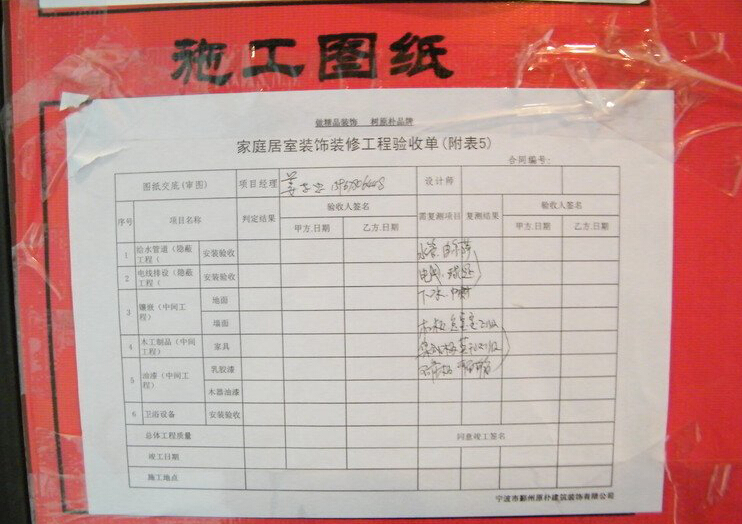 施工图纸
做精品装饰 树原朴品牌
家庭居室装饰装修工程验收单(附表5)
合同编号:
图纸交底(审图) 项目经理 设计师
序号 项目名称 判定结果 验收人签名 需复测项目 复测结果 验收人签名
甲方.日期 乙方.日期 甲方.日期 乙方.日期
1 给水管道(隐蔽工程( 安装验收
2 电线排设(隐蔽工程( 安装验收
3 镶嵌(中间工程) 地面
墙面
4 木工制品(中间工程) 家具
5 油漆(中间工程) 乳胶漆
木器油漆
6 卫浴设备 安装验收
总体工程质量 同意竣工签名
竣工日期
施工地点
宁波市鄞州原朴建筑装饰有限公司